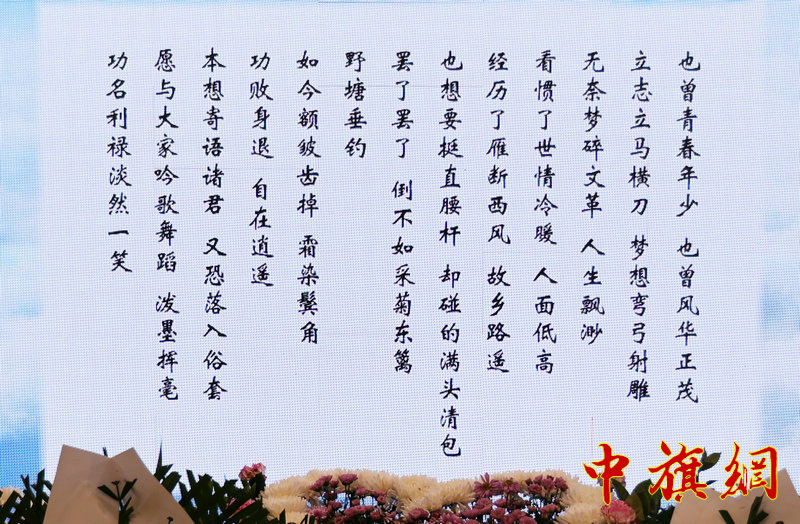 也曾青春年少 也曾风华正茂
立志立马横刀 梦想弯弓射雕
无奈梦碎文革 人生飘渺
看惯了世情冷暖 人面低高
经历了雁断西风 故乡路遥
也想要挺直腰杆 却碰的满头清包
罢了罢了 倒不如采菊东篱
野塘垂钓
如今额皱齿掉 霜染鬓角
功败身退 自在逍遥
本想寄语诸君 又恐落入俗套
愿与大家吟歌舞蹈 泼墨挥毫
功名利禄淡然一笑
中旗網